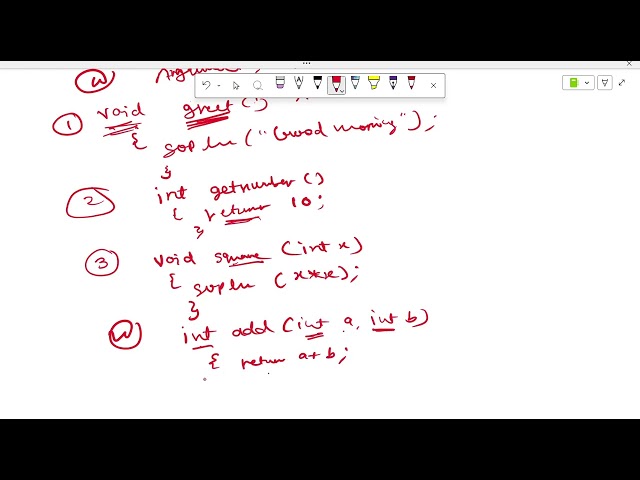 ④
① void greet()
{ sopln("Good morning");
}
② int getnumber()
{ return 10;
}
③ void square (int x)
{ sopln (x*x);
}
④ int add (int a, int b)
{ return a+b;